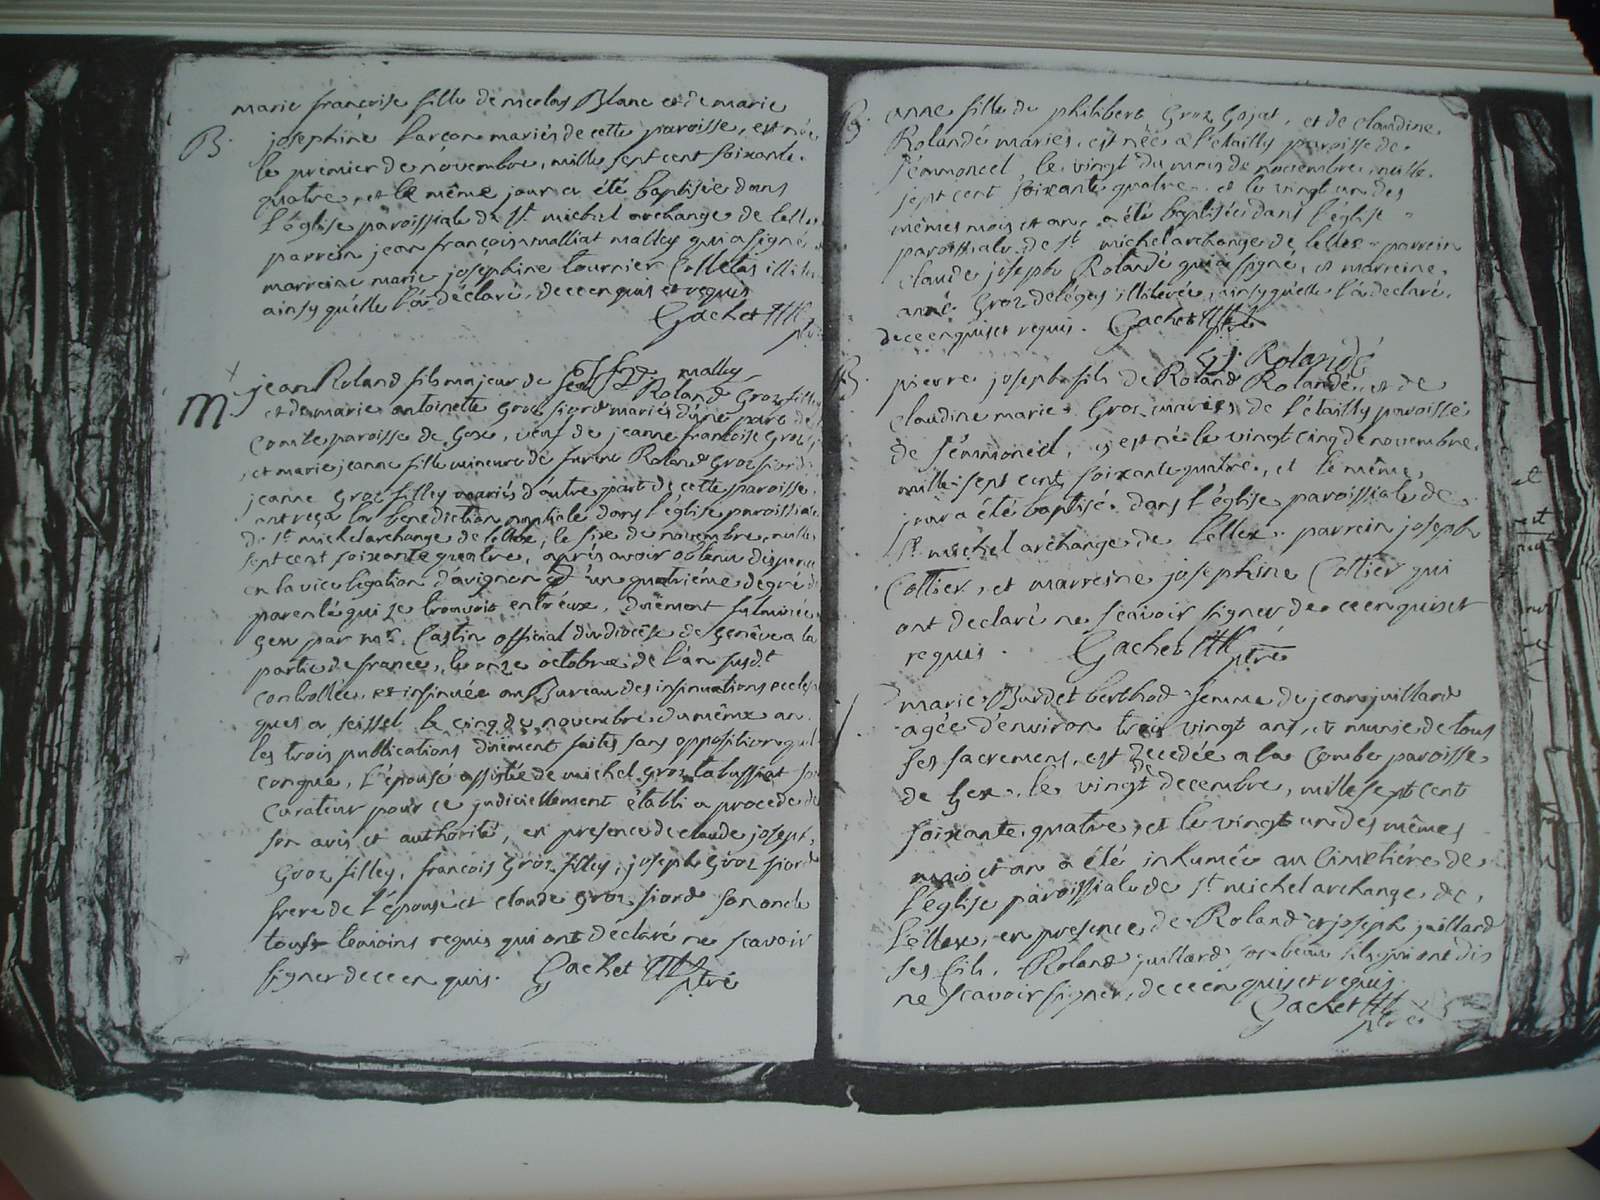 marie françoise fille de nicolas Blanc et de marie
B. josephine Lançon mariés de cette paroisse, est née
le premier de novembre, mille sept cent soixante
quatre, et le même jour a été baptisée dans
l'église paroissiale de St michel archange de lellex
parrein jean françois malliat malley qui a signé
marreine marie joséphine tournier Colletas illitérée
ainsy qu'elle l'a déclaré, de ce enquis et requis
Gachet ptre
malley
M jean Roland fils majeur de feu Roland Groz filley
et de marie antoinette Groz fiord mariés d'une part de la
Combe paroisse de Gex, veuf de jeanne françoise Groz
et marie jeanne fille mineure de furent Roland Groz fiord
jeanne Groz filley mariés d'autre part de cette paroisse,
ont reçu la benediction nuptiale dans l'église paroissiale
de St michel archange de lellex, le six de novembre, mille
sept cent soixante quatre, après avoir obtenu dispense
en la vice légation d'avignon d'un quatriéme degré de
parenté qui se trouvoit entr'eux, düement fulminée
par mr. Castin official du diocèse de Genêve a la
partie de france, le onze octobre de l'an susdt
controllée, et insinuée au Bureau des insinuations eccles
ques a seissel le cinq de novembre du même an
les trois publications düement faites sans opposition quel
conque, l'épouse assistée de michel Groz tabussiat son
curateur pour ce judiciellement établi a procédé de
son avis et authorité, en presence de claude joseph,
Groz filley, françois Groz filley, joseph Groz fiord
frere de l'épouse et claude Groz fiord son oncle
tous témoins requis qui ont déclaré ne scavoir
signer de ce enquis. Gachet ptre
B. anne fille de philibert Groz Gojat, et de claudine
Rolandé mariés, est née a l'étailly paroisse de
sémmoncel, le vingt du mois de novembre, mille
sept cent soixante quatre, et le vingt un des
mêmes mois et an, a été baptisée dans l'église
paroissiale de St michel archange de lellex parrein
claude joseph Rolandé qui a signé, et marreine,
anne Groz deléges illitérée, ainsy qu'elle l'a declaré,
de ce enquis et requis. Gachet ptre
Rolandé
B. pierre joseph fils de Roland Rolandé, et de
claudine marie Groz, mariés de l'étailly paroisse
de sémmoncel, est né le vingt cinq de novembre
mille sept cent soixante quatre, et le même,
jour a été baptisé dans l'église paroissiale de
St michel archange de lellex. parrein joseph
Cottier, et marreine josephine Cottier qui
ont declaré ne scavoir signer de ce enquis et
requis. Gachet ptre
marie Burdet berthod femme de jean juillard
agée d'environ trois vingt ans, et munie de tous
ses sacrements, est decedée a la Combe paroisse
de Gex, le vingt decembre, mille sept cent
soixante quatre, et le vingt un des mêmes
mois et an a été inhumée au cimetiére de
l'église paroissiale de St michel archange de,
lellex, en presence de Roland et joseph juillard
ses fils, Roland juillard son beau fils qui ont dis
ne scavoir signer, de ce enquis et requis.
Gachet
ptre